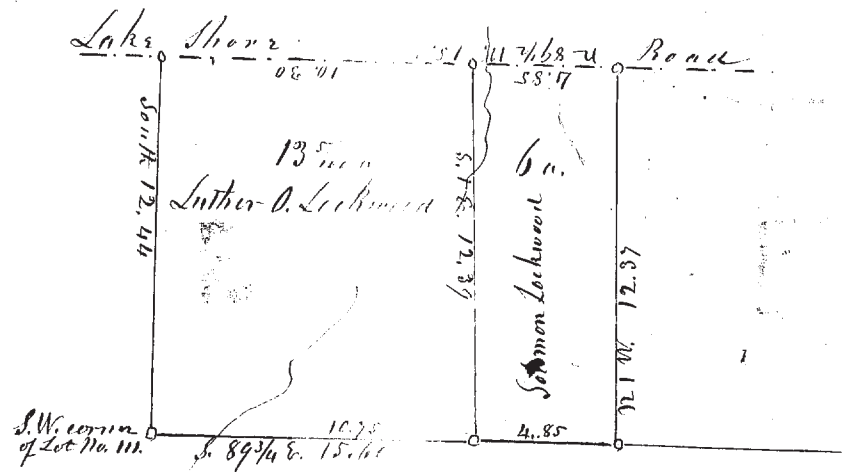 Lake Shore Road
N 89½ W
10.30
4.85
South 12.44
13
6 a.
Luther O. Lockwood
S. 1 E. 12.39
Solomon Lockwood
N 1 W. 12.37
S.W. corner
of Lot No. 111.
10.75
S. 89 3/4 E. 15.60
4.85